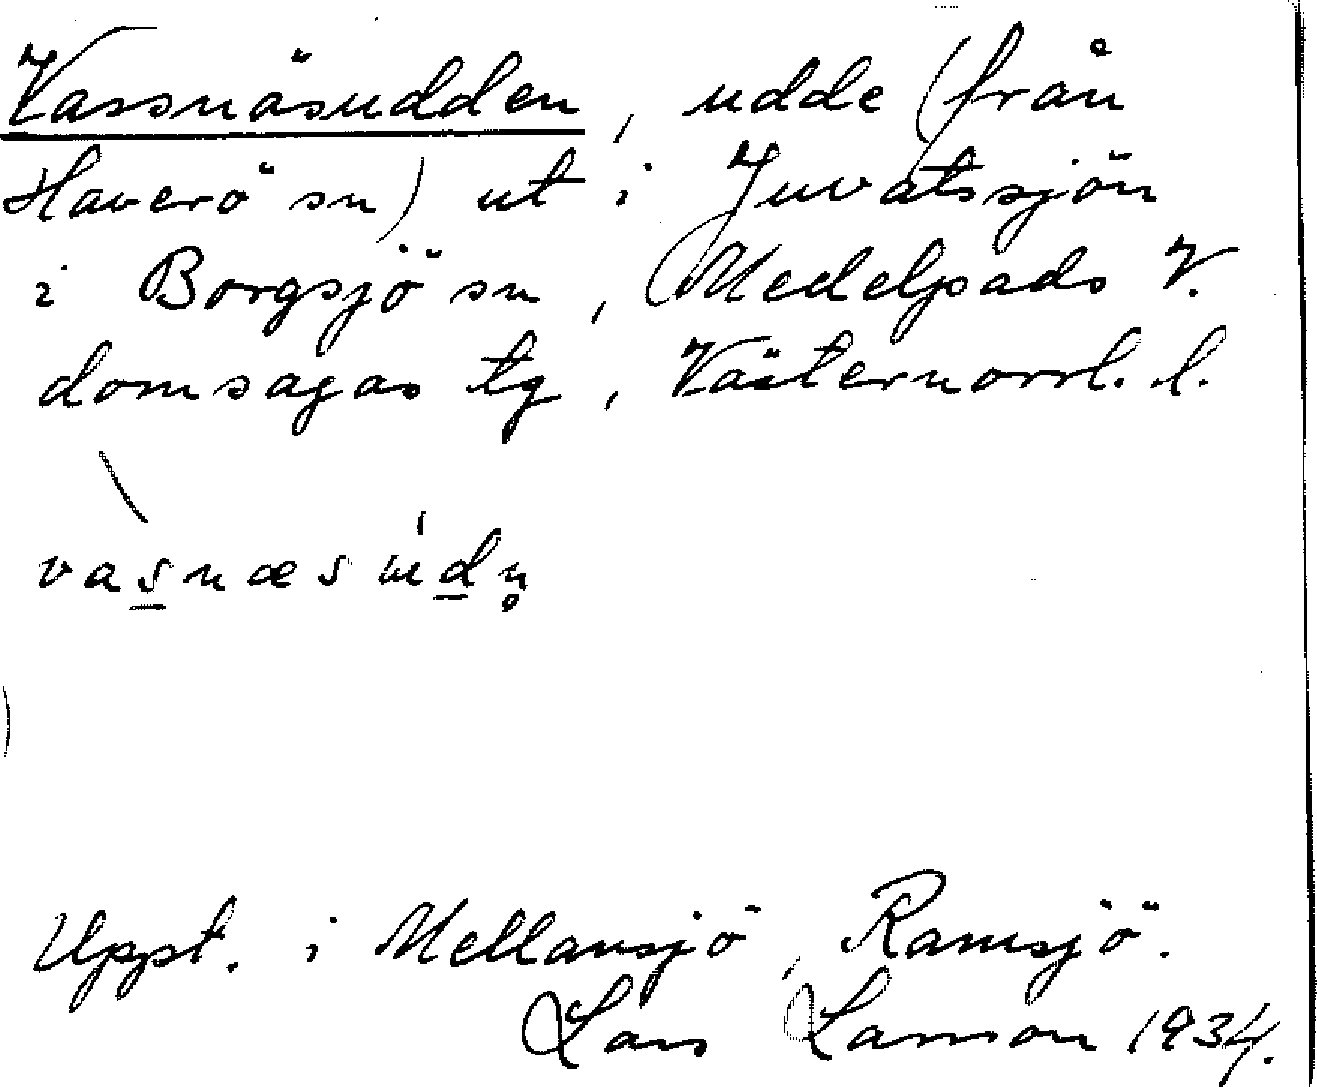 Vassnäsudden, udde (från
Haverö sn) ut i Juvatssjön
i Borgsjö sn, Medelpads V.
domsagas tg, Västernorrl. l.
vas̲næsúd̲n̥
Uppt. i Mellansjö, Ramsjö.
Lars Larsson 1934.